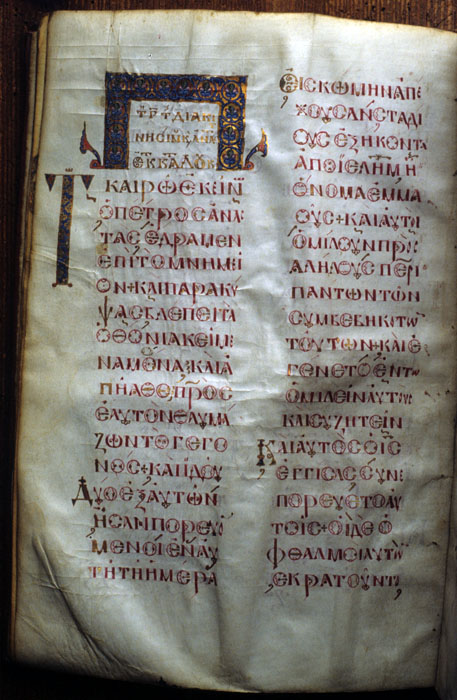 ΔΙΑΚΙ
ΝΗCΙΜ
Τ
ΚΑΙΡΩ ΕΚΕΙΝ
Ο ΠΕΤΡΟC ΑΝΑ
ΤΑC ΕΔΡΑΜΕΝ
ΕΠΙ ΤΟ ΜΝΗΜΕΙ
ΟΝ + ΚΑΙ ΠΑΡΑΚΥ
ΨΑC ΒΛΕΠΕΙ ΤΑ
ΟΘΟΝΙΑ ΚΕΙΜΕ
ΝΑ ΜΟΝΑ + ΚΑΙ Α
ΠΗΛΘΕ ΠΡΟC
ΕΑΥΤΟΝ ΘΑΥΜΑ
ΖΩΝ ΤΟ ΓΕΓΟ
ΝΟC + ΚΑΙ ΙΔΟΥ
ΔΥΟ ΕΞ ΑΥΤΩΝ
ΗCΑΝ ΠΟΡΕΥΟ
ΜΕΝΟΙ ΕΝ ΑΥ
ΤΗ ΤΗ ΗΜΕΡΑ
ΕΙC ΚΩΜΗΝ ΑΠΕ
ΧΟΥCΑΝ CΤΑΔΙ
ΟΥC ΕΞΗΚΟΝΤΑ
ΑΠΟ ΙΕΛΗΜ Η
ΟΝΟΜΑ ΕΜΜΑ
ΟΥC + ΚΑΙ ΑΥΤΟΙ
ΩΜΙΛΟΥΝ ΠΡΟC
ΑΛΛΗΛΟΥC ΠΕΡΙ
ΠΑΝΤΩΝ ΤΩΝ
CΥΜΒΕΒΗΚΟΤΩ
ΤΟΥΤΩΝ ΚΑΙ Ε
ΓΕΝΕΤΟ ΕΝ ΤΩ
ΟΜΙΛΕΙΝ ΑΥΤΟΥ
ΚΑΙ CΥΖΗΤΕΙΝ
ΚΑΙ ΑΥΤΟC Ο ΙC
ΕΓΓΙCΑC CΥΝΕ
ΠΟΡΕΥΕΤΟ ΑΥ
ΤΟΙC + ΟΙ ΔΕ Ο
ΦΘΑΛΜΟΙ ΑΥΤΩ
ΕΚΡΑΤΟΥΝΤΟ